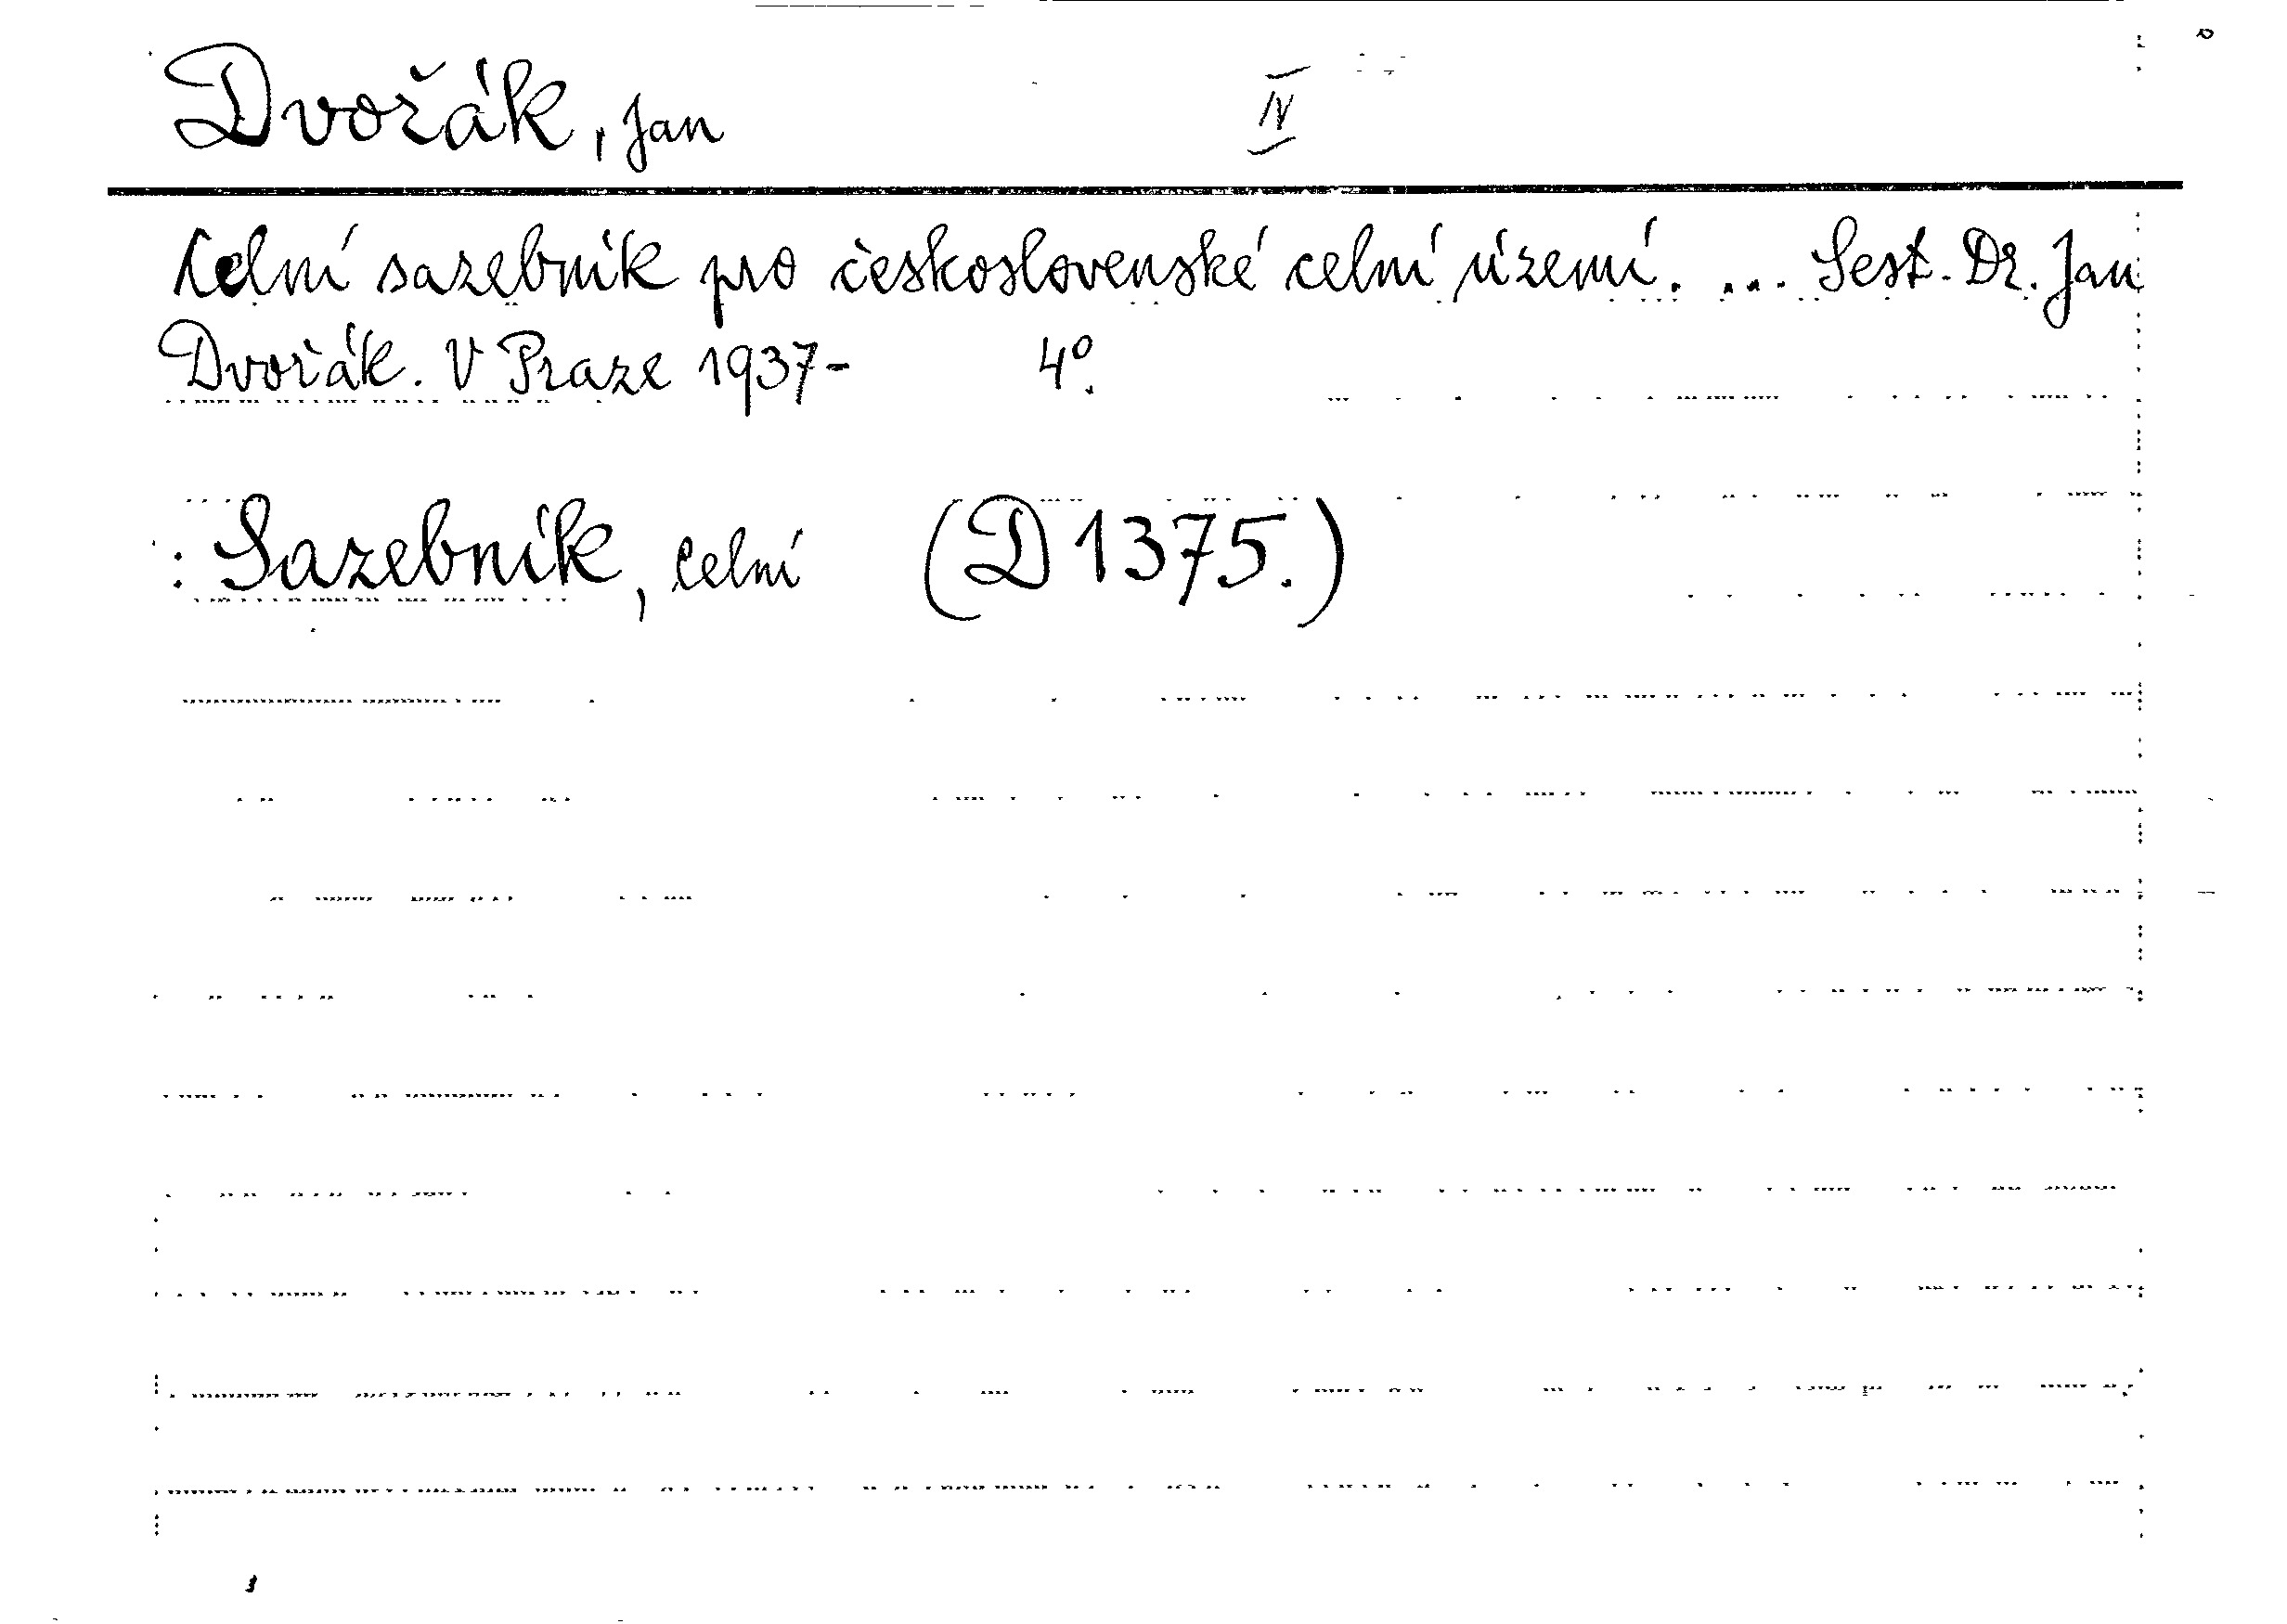 Dvořák, Jan IV
Celní sazebník pro československé celní území. ... Sest. Dr. Jan
Dvořák. V Praze 1937- 4°.
: Sazebník, celní (D 1375.)